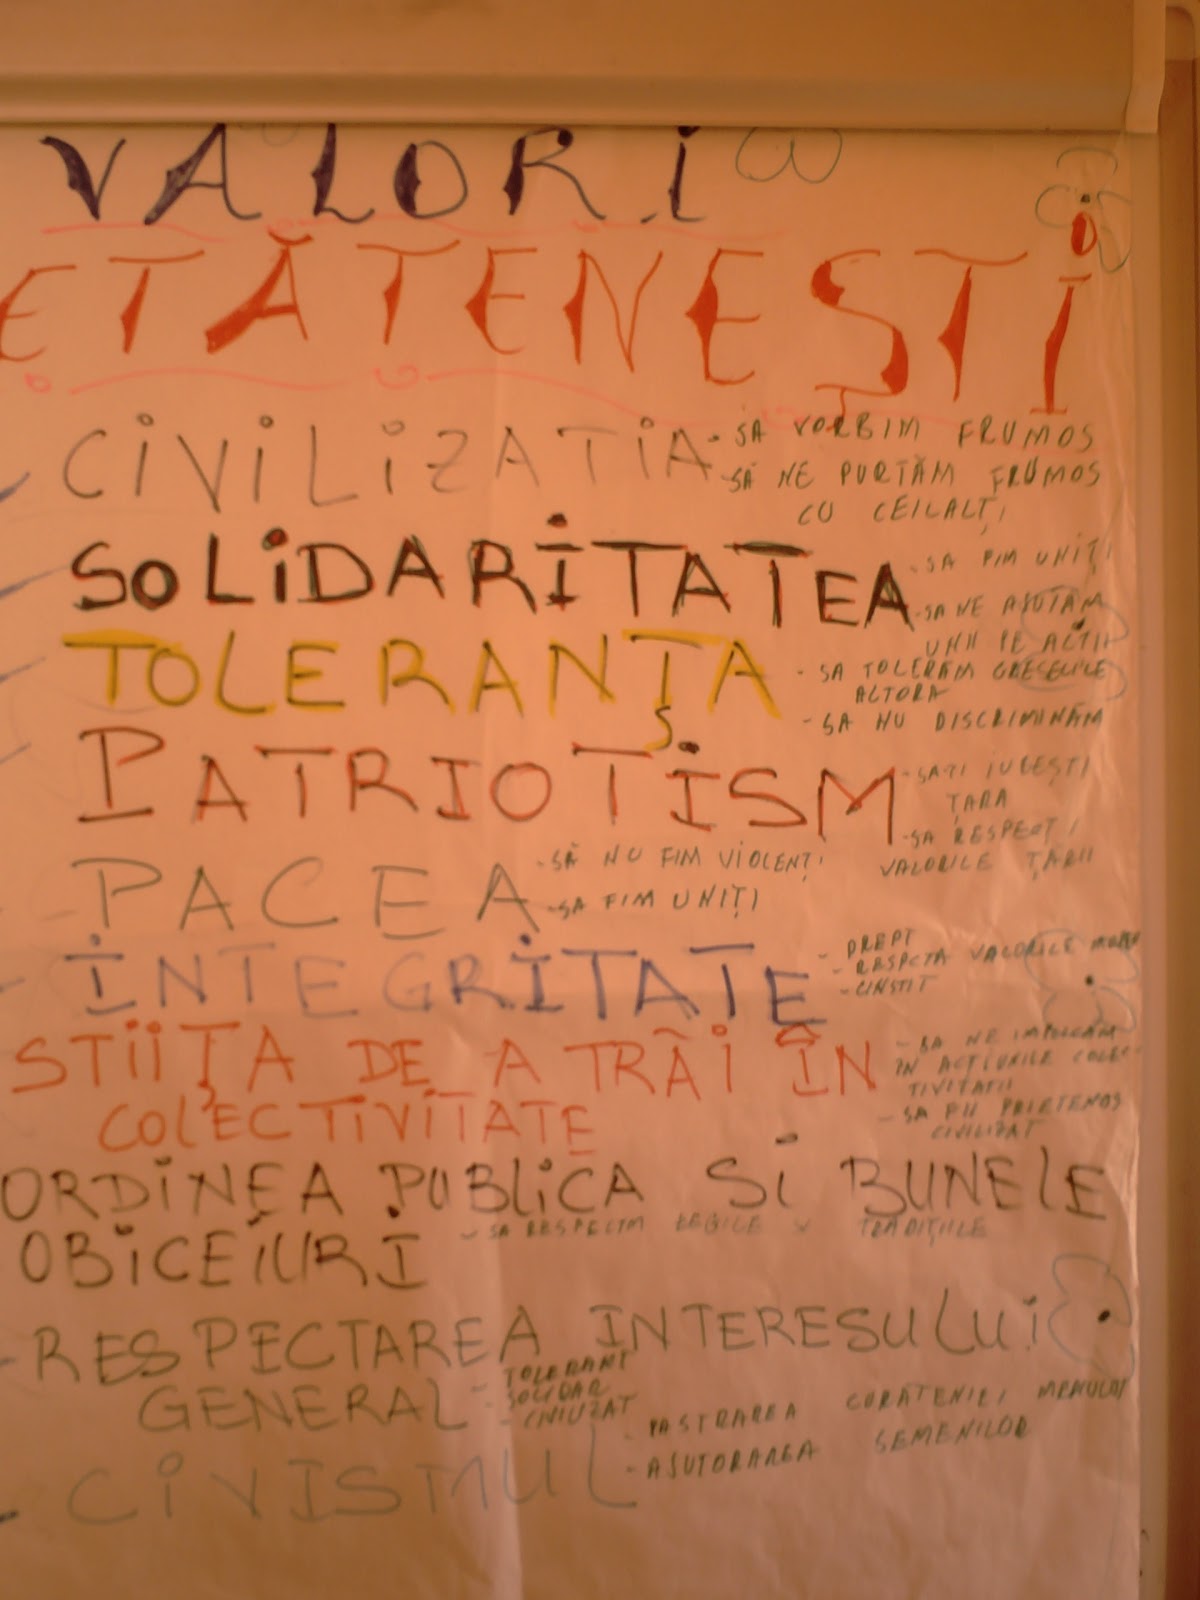 VALORI
ETĂȚENEȘTI
CIVILIZATIA - SA VORBIM FRUMOS
- SĂ NE PURTĂM FRUMOS
CU CEILALȚI
SOLIDARITATEA - SA FIM UNIȚI
- SA NE AJUTĂM
UNII PE ALȚII
TOLERANȚA - SA TOLERĂM GRESELILE
ALTORA
- SA NU DISCRIMINĂM
PATRIOTISM - SA-TI IUBEȘTI
ȚARA
- SA RESPECȚI
VALORILE ȚĂRII
PACEA - SĂ NU FIM VIOLENȚI
- SA FIM UNIȚI
INTEGRITATE - DREPT
- RESPCTA VALORILE
- CINSTIT
STIIȚA DE A TRĂI ÎN - SA NE IMPLICĂM
ÎN ACȚIUNILE COLEC-
TIVITATII
COLECTIVITATE - SA FII PRIETENOS
CIVILIZAT
ORDINEA PUBLICA SI BUNELE
OBICEIURI - SA RESPECTM LEGILE SI TRADIȚIILE
- RESPECTAREA INTERESULUI
GENERAL - TOLERANT
- SOLIDAR
- CIVILIZAT
- CIVISMUL - PASTRAREA CURATENIEI MEDIULUI
- AJUTORAREA SEMENILOR